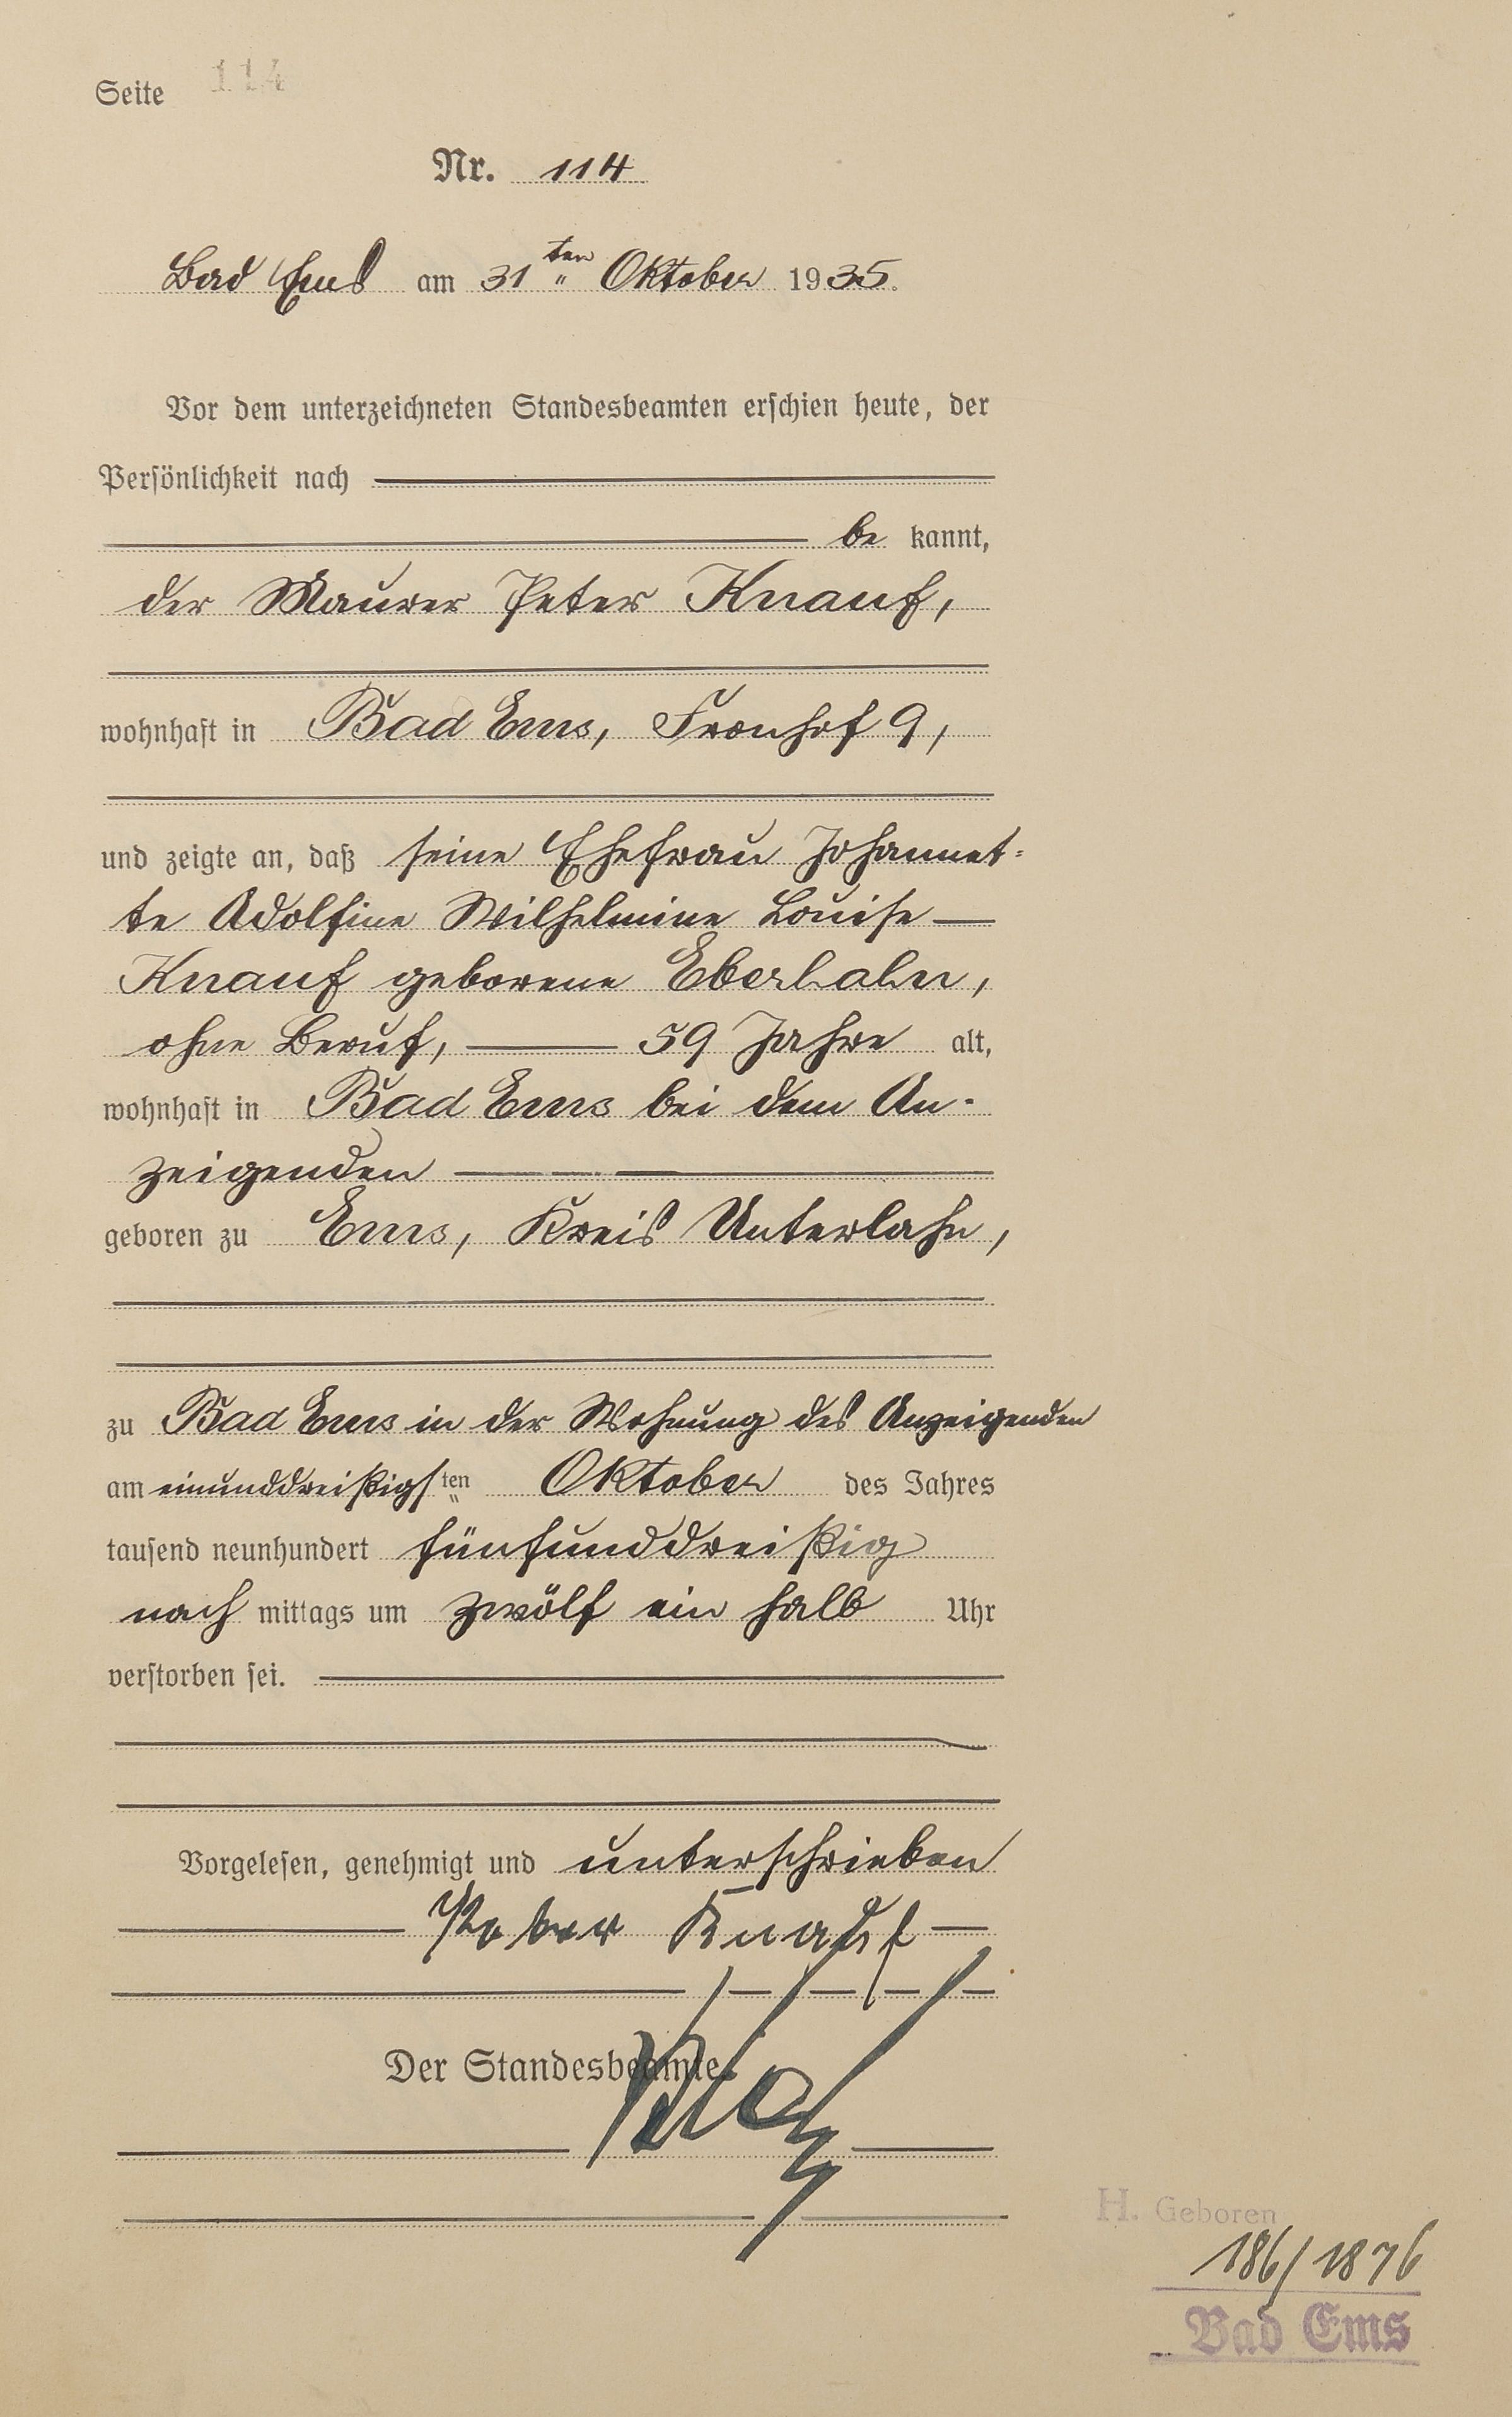 Seite 114
Nr. 114
Bad Ems am 31ten Oktober 1935.
Vor dem unterzeichneten Standesbeamten erschien heute, der
Persönlichkeit nach
be kannt,
der Maurer Peter Knauf,
wohnhaft in Bad Ems, Fronhof 9,
und zeigte an, daß seine Ehefrau Johannet-
te Adolfine Wilhelmine Louise
Knauf geborene Eberhahn,
ohne Beruf, 59 Jahre alt,
wohnhaft in Bad Ems bei dem An-
zeigenden
geboren zu Ems, Kreis Unterlahn,
zu Bad Ems in der Wohnung des Anzeigenden
am einunddreißigsten Oktober des Jahres
tausend neunhundert fünfunddreißig
nach mittags um zwölf ein halb Uhr
verstorben sei.
Vorgelesen, genehmigt und unterschrieben
Peter Knauf
Der Standesbeamte.
H. Geboren
186/1876
Bad Ems